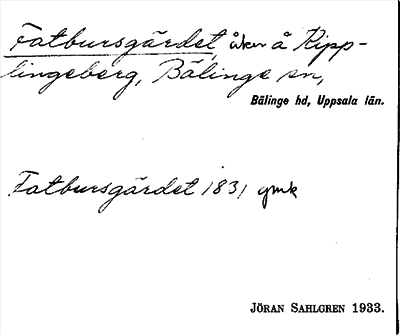 Fatbursgärdet, åker å Ripp-
lingeberg, Bälinge sn,
Bälinge hd, Uppsala län.
Fatbursgärdet 1831 gmk
JÖRAN SAHLGREN 1933.